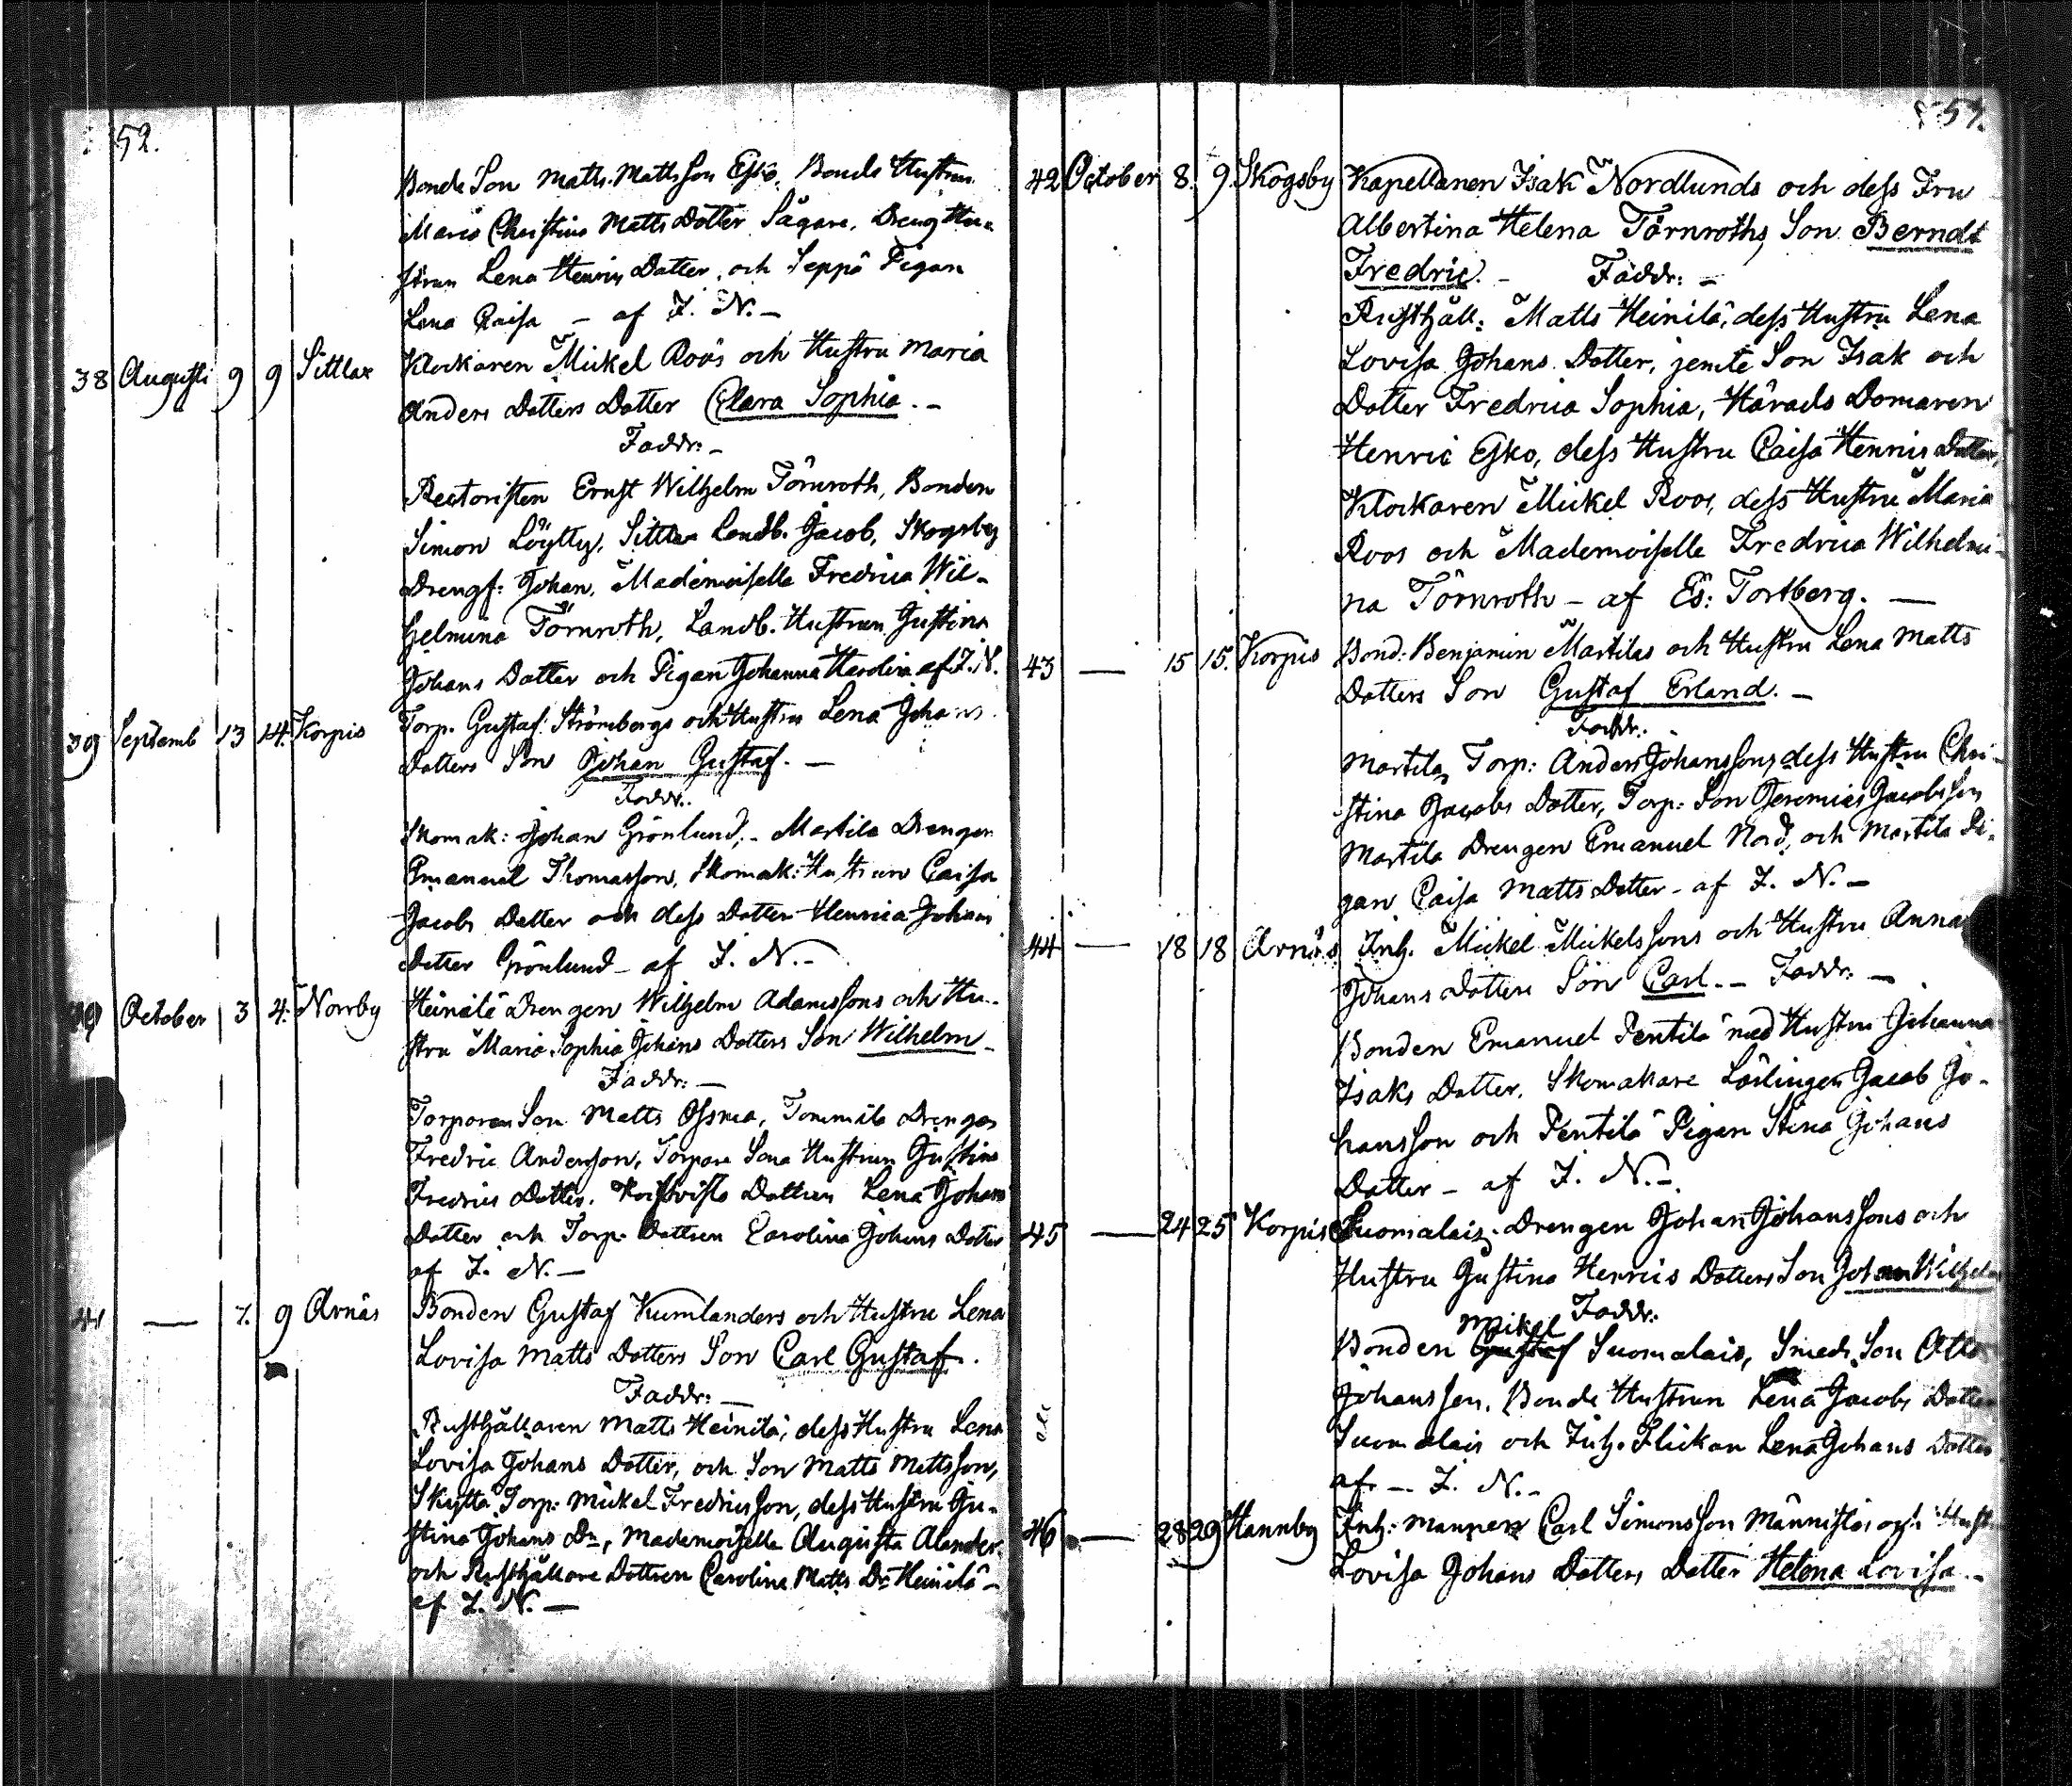 52.
Bonde Son Matts Mattsson Esko, Bonde Hustrun
Maria Christina Matts Dotter Sågare, Dreng Hu-
strun Lena Henrics Dotter, och Seppä Pigan
Lena Caisa - af I. N. -
38 Augusti 9 9 Sittlax Klockaren Mickel Roos och Hustru Maria
Anders Dotters Dotter Clara Sophia. -
Faddr: -
Rectoristen Ernst Wilhelm Törnroth, Bonden
Simon Löytty, Sittlax Landb. Jacob, Skogsby
Drengf: Johan, Mademoiselle Fredrica Wil-
helmina Törnroth, Landb. Hustrun Gustina
Johans Dotter och Pigan Johanna af I. N.
39 Septemb 13 14. Korpis Torp. Gustaf Strömbergs och Hustru Lena Johans
Dotters Son Johan Gustaf. -
Faddr:
Skomak: Johan Grönlund, - Martila Drengen
Emanuel Thomasson, Skomak: Hustrun Caisa
Jacobs Dotter och dess Dotter Henrica Johans
Dotter Grönlund - af I. N. -
October 3 4. Norrby Heinilä Drengen Wilhelm Adamssons och Hu-
stru Maria Sophia Johans Dotters Son Wilhelm -
Faddr: -
Torparen Son Matts Ossma, Tommila Drengen
Fredric Andersson, Torpare Sona Hustrun Gustina
Fredrics Dotter, Dottren Lena Johans
Dotter och Torp. Dottren Carolina Johans Dotter
af I. N. -
41 — 7. 9 Arnäs Bonden Gustaf Kumlanders och Hustru Lena
Lovisa Matts Dotters Son Carl Gustaf.
Faddr: -
Rusthållaren Matts Heinilä, dess Hustru Lena
Lovisa Johans Dotter, och Son Matts Mattsson,
Skyttä Torp: Mickel Fredricsson, dess Hustru Gu-
stina Johans Dr, Mademoiselle Augusta Alander
och Rusthållare Dottren Carolina Matts Dr Heinilä -
af I. N. -
57.
42 October 8. 9. Skogsby Kapellanen Isak Nordlunds och dess Fru
Albertina Helena Törnroths Son Berndt
Fredric. - Faddr: -
Rusthåll: Matts Heinilä, dess Hustru Lena
Lovisa Johans Dotter, jemte Son Isak och
Dotter Fredrica Sophia, Härads Domaren
Henric Esko, dess Hustru Caisa Henrics Dotter,
Klockaren Mickel Roos, dess Hustru Maria
Roos och Mademoiselle Fredrica Wilhelmi-
na Törnroth - af Es: Tortberg. -
43 — 15 15. Korpis Bond: Benjamin Martilas och Hustru Lena Matts
Dotters Son Gustaf Erland. -
Faddr:
Martilas Torp: Anders Johanssons, dess Hustru Chri-
stina Jacobs Dotter, Torp: Son Jeremias Jacobsson
Martila Drengen Emanuel Nord, och Martila Pi-
gan Caisa Matts Dotter - af I. N. -
44 — 18 18 Arnäs Inh. Mickel Mickelssons och Hustru Anna
Johans Dotters Son Carl. - Faddr: -
Bonden Emanuel Pentilä med Hustru Johanna
Isaks Dotter, Skomakare Lärlingen Jacob Jo-
hansson och Pentilä Pigan Stina Johans
Dotter - af I. N. -
45 — 24 25 Korpis Suomalais Drengen Johan Johanssons och
Hustru Gustina Henrics Dotters Son Johan Wilhelm
Faddr:
Mikel
Bonden Gustaf Suomalais, Smeds Son Otto
Johansson, Bonde Hustrun Lena Jacobs Dotter
Suomalais och Inh. Flickan Lena Johans Dotter
af - I. N. -
46 — 28 29 Hannby Inh: mannen Carl Simonsson Männistös och Hustru
Lovisa Johans Dotters Dotter Helena Lovisa -